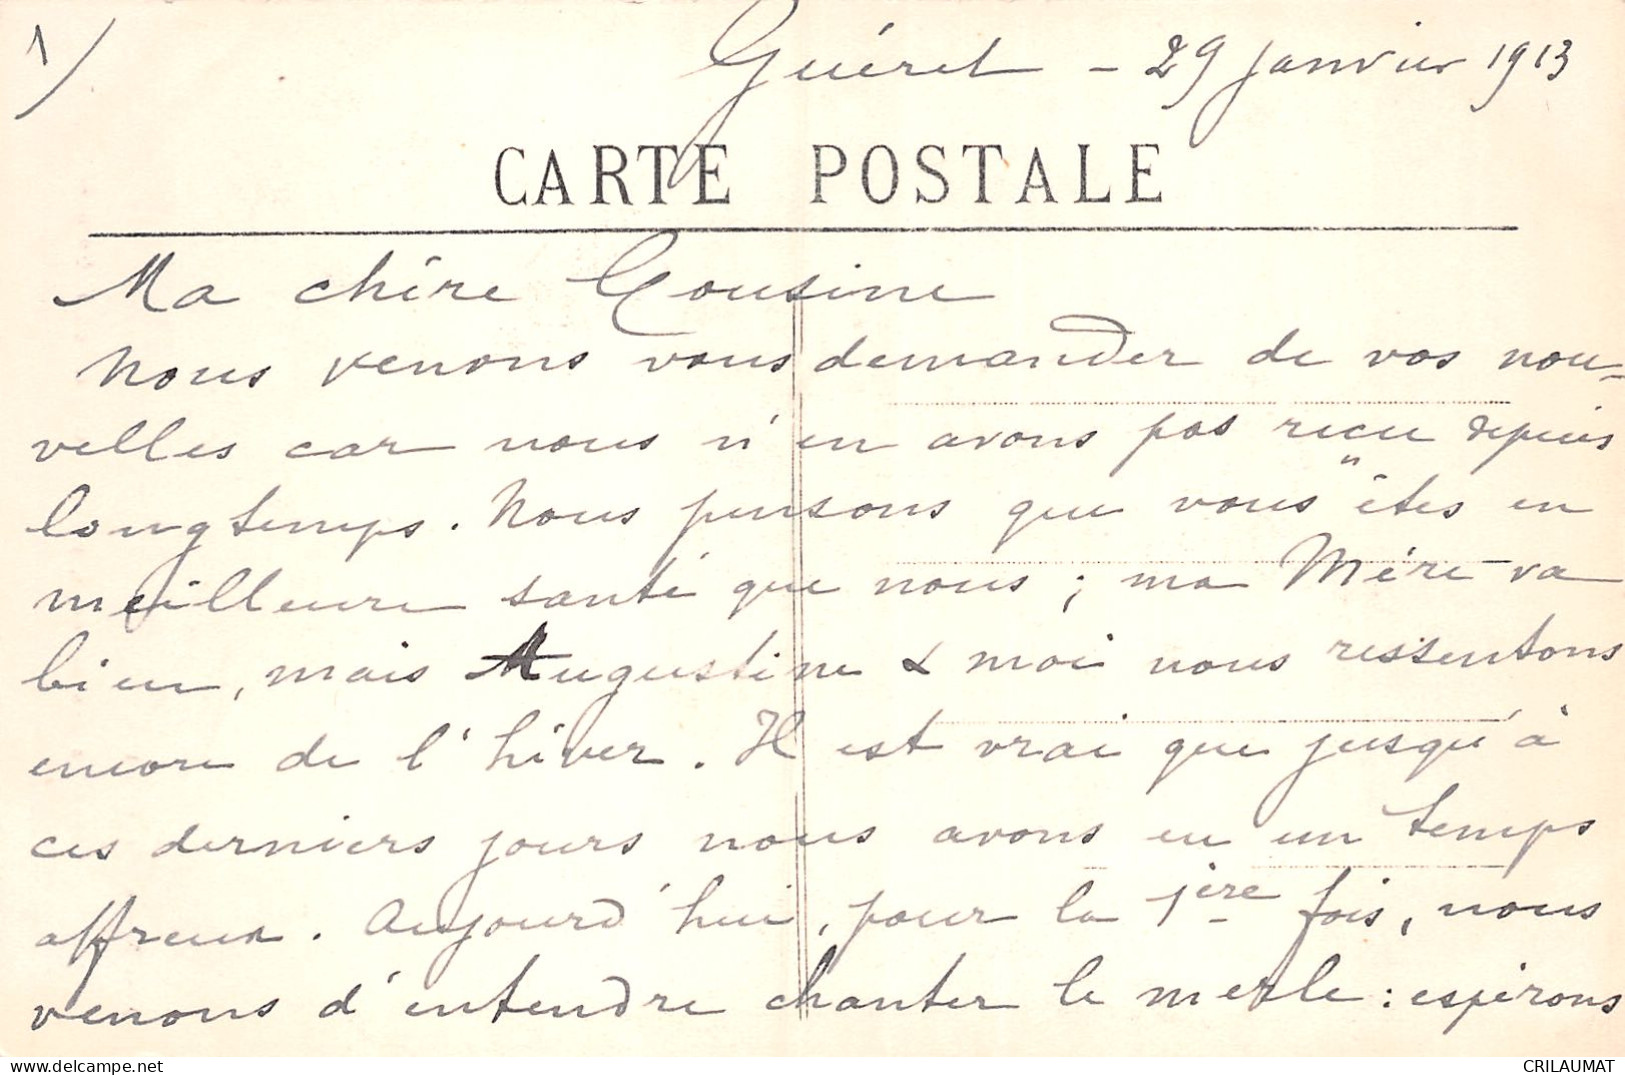 1)
Guéret - 29 janvier 1913
CARTE POSTALE
Ma chère Cousine
Nous venons vous demander de vos nou-
velles car nous n'en avons pas reçu depuis
longtemps. Nous pensons que vous "êtes en
meilleure santé que nous ; ma Mère va
bien, mais Augustine & moi nous ressentons
encore de l'hiver. Il est vrai que jusqu'à
ces derniers jours nous avons eu un temps
affreux. Aujourd'hui, pour la 1ère fois, nous
venons d'entendre chanter le merle : espérons
www.delcampe.net
CRILAUMAT